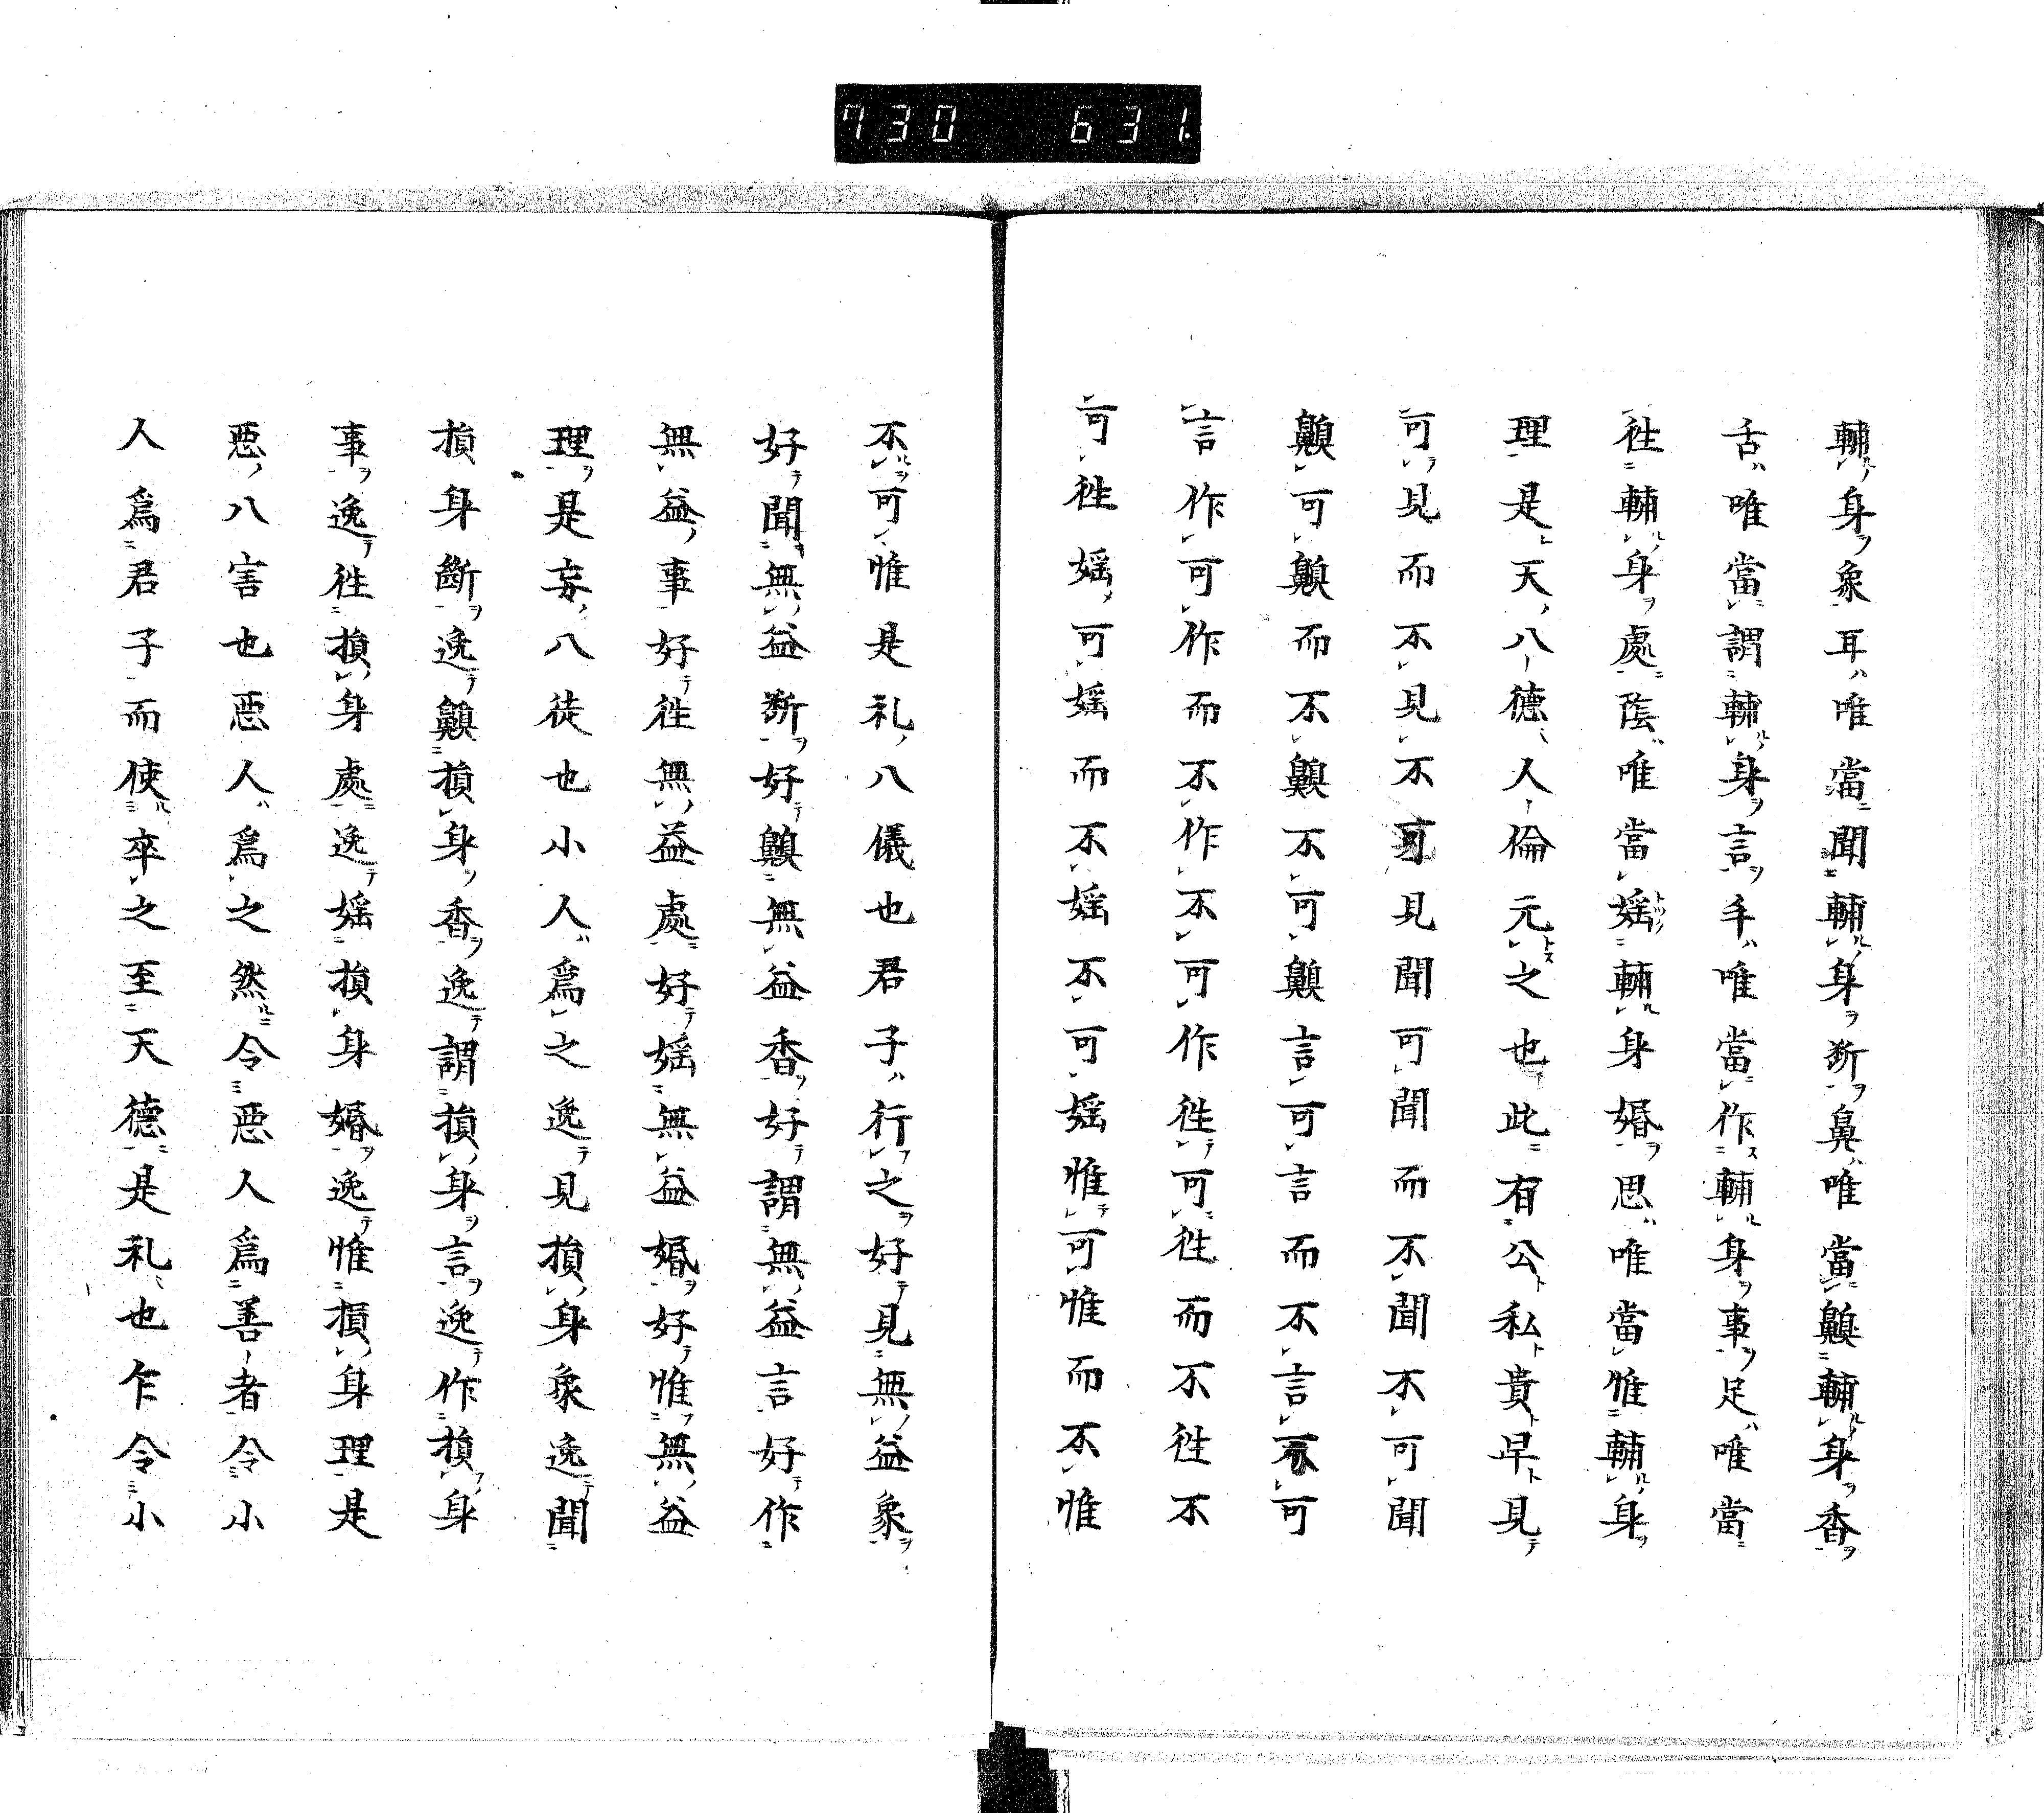 730 631
輔身象耳唯當聞輔身斷鼻唯當齅輔身香
舌唯當謂輔身言手唯當作輔身事足唯當
徃輔身處陰唯當婬輔身婚思唯當惟輔身
理是天八德人倫元之也此有公私貴早見
可見而不見不可見聞可聞而不聞不可聞
齅可齅而不齅不可齅言可言而不言不可
言作可作而不作不可作徃可徃而不徃不
可徃婬可婬而不婬不可婬惟可惟而不惟
不可惟是礼八儀也君子行之好見無益象
好聞無益斷好齅無益香好謂無益言好作
無益事好徃無益處好婬無益婚好惟無益
理是妄八徒也小人爲之逸見損身象逸聞
損身斷逸齅損身香逸謂損身言逸作損身
事逸徃損身處逸婬損身婚逸惟損身理是
惡八害也惡人爲之然令惡人爲善者令小
人爲君子而使卒之至天德是礼也乍令小